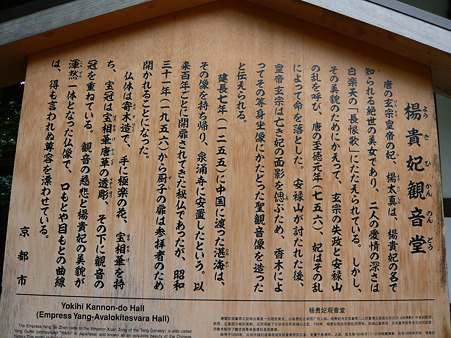 楊貴妃観音堂
よう き ひ かん のん どう
唐の玄宗皇帝の妃、楊太真は、楊貴妃の名で
知られる絶世の美女であり、二人の愛情の深さは
白楽天の「長恨歌」にたたえられている。しかし、
その美貌のためにかえって、玄宗の失政と安禄山
の乱を呼び、唐の至徳元年(七五六)、妃はその乱
によって命を落とした。安禄山が討たれた後、
皇帝玄宗は亡き妃の面影を偲ぶため、香木によ
ってその等身坐像にかたどった聖観音像を造った
と伝えられる。
建長七年(一二五五)に中国に渡った湛海は、
その像を持ち帰り、泉涌寺に安置したという。以
来百年ごとに開扉されてきた秘仏であったが、昭和
三十一年(一九五六)から厨子の扉は参拝者のため
開かれることになった。
仏体は寄木造で、手に極楽の花、宝相華を持
ち、宝冠は宝相華唐草の透彫、その下に観音の
冠を重ねている。観音の慈悲と楊貴妃の美貌が
渾然一体となった仏像で、口もとや目もとの曲線
は、得も言われぬ尊容を漂わせている。
京都市
Yokihi Kannon-do Hall
(Empress Yang-Avalokitesvara Hall)
杨贵妃观音堂